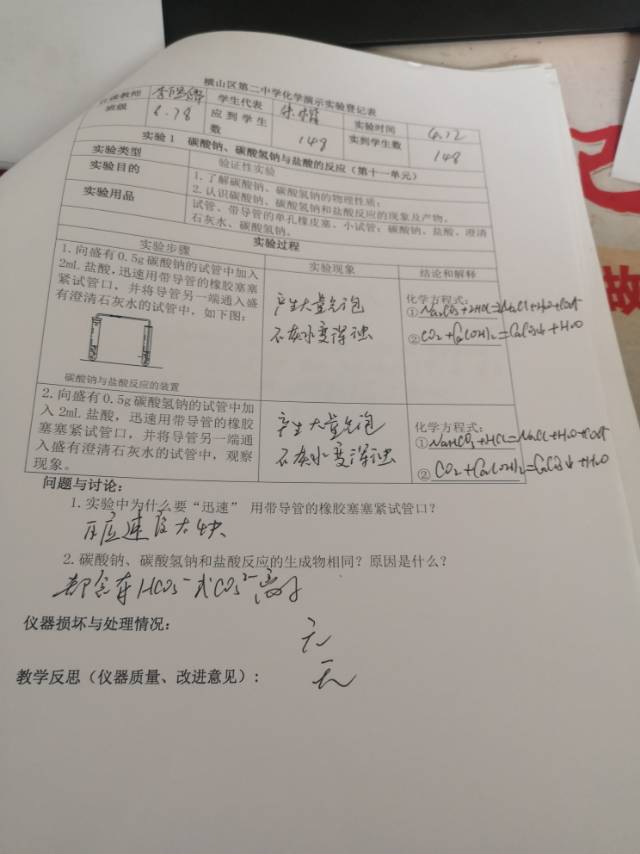 横山区第二中学化学演示实验登记表
任课教师 学生代表 朱 实验时间 4.12
班级 8.78 应到学生数 148 实到学生数 148
实验1 碳酸钠、碳酸氢钠与盐酸的反应（第十一单元）
实验类型 验证性实验
实验目的 1.了解碳酸钠、碳酸氢钠的物理性质；
2.认识碳酸钠、碳酸氢钠和盐酸反应的现象及产物。
实验用品 试管、带导管的单孔橡皮塞、小试管；碳酸钠、盐酸、澄清
石灰水、碳酸氢钠。
实验过程
实验步骤 实验现象 结论和解释
1.向盛有0.5g碳酸钠的试管中加入
2mL盐酸，迅速用带导管的橡胶塞塞
紧试管口，并将导管另一端通入盛
有澄清石灰水的试管中，如下图：
碳酸钠与盐酸反应的装置
产生大量气泡
石灰水变浑浊
化学方程式：
①Na₂CO₃+2HCl=2NaCl+H₂O+CO₂↑
②CO₂+Ca(OH)₂=CaCO₃↓+H₂O
2.向盛有0.5g碳酸氢钠的试管中加
入2mL盐酸，迅速用带导管的橡胶
塞塞紧试管口，并将导管另一端通
入盛有澄清石灰水的试管中，观察
现象。
产生大量气泡
石灰水变浑浊
化学方程式：
①NaHCO₃+HCl=NaCl+H₂O+CO₂↑
②CO₂+Ca(OH)₂=CaCO₃↓+H₂O
问题与讨论：
1.实验中为什么要“迅速” 用带导管的橡胶塞塞紧试管口？
反应速度太快
2.碳酸钠、碳酸氢钠和盐酸反应的生成物相同？原因是什么？
都含有HCO₃⁻或CO₃²⁻离子
仪器损坏与处理情况：
无
教学反思（仪器质量、改进意见）：
无